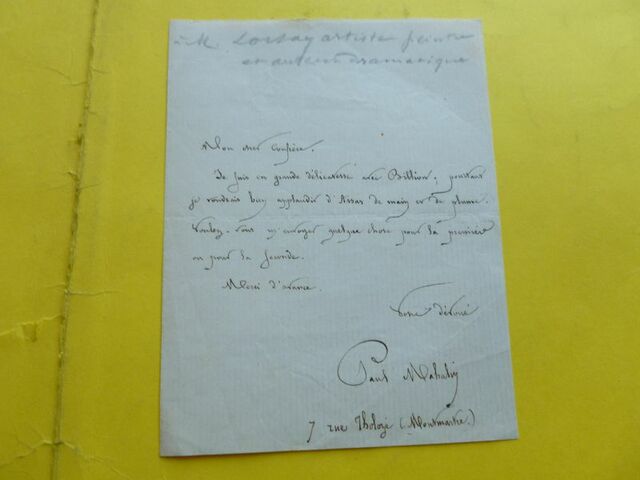 à M. Lorsay artiste peintre
et auteur dramatique
Mon cher confrère.
Je suis en grande délicatesse avec Billion; pourtant
je voudrais bien applaudir d'Assas de main et de plume.
Voulez-vous m'envoyer quelque chose pour la première
ou pour la seconde.
Merci d'avance.
votre dévoué
Paul Mahalin
7 rue Tholozé (Montmartre.)